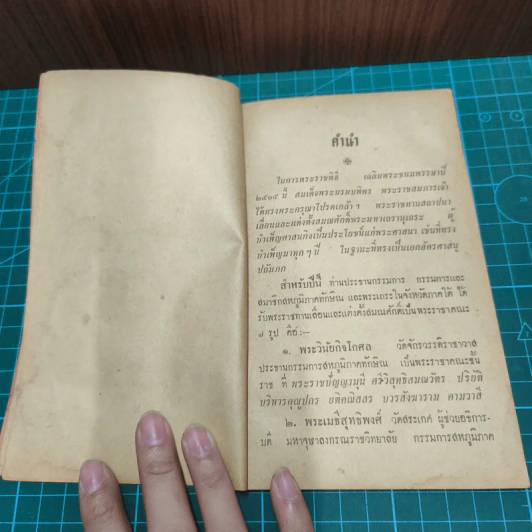 คำนำ
ในการพระราชพิธี เฉลิมพระชนมพรรษาปี
๒๕๑๔ นี้ สมเด็จพระบรมบพิตร พระราชสมภารเจ้า
ได้ทรงพระกรุณาโปรดเกล้า ฯ พระราชทานสถาปนา
เลื่อนและแต่งตั้งสมณศักดิ์พระมหาเถรานุเถระ ผู้
บำเพ็ญศาสนกิจเป็นประโยชน์แก่พระศาสนา เช่นที่ทรง
บำเพ็ญมาทุก ๆ ปี ในฐานะที่ทรงเป็นเอกอัครศาสนู
ปถัมภก
สำหรับปีนี้ ท่านประธานกรรมการ กรรมการและ
สมาชิกสหภูมิภาคทักษิณ และพระเถระในจังหวัดภาคใต้ ได้
รับพระราชทานเลื่อนและแต่งตั้งสมณศักดิ์เป็นพระราชาคณะ
๘ รูป คือ:—
๑. พระวินัยกิจโกศล วัดจักรวรรดิราชาวาส
ประธานกรรมการสหภูมิภาคทักษิณ เป็นพระราชาคณะชั้น
ราช ที่ พระราชปัญญามุนี ศรีวิสุทธิสมณวัตร ปริยัติ
บริหารคุณูปกร ยติคณิสสร บวรสังฆาราม คามวาสี
๒. พระเมธีสุทธิพงศ์ วัดสระเกศ ผู้ช่วยอธิการ-
บดี มหาจุฬาลงกรณราชวิทยาลัย กรรมการสหภูมิภาค